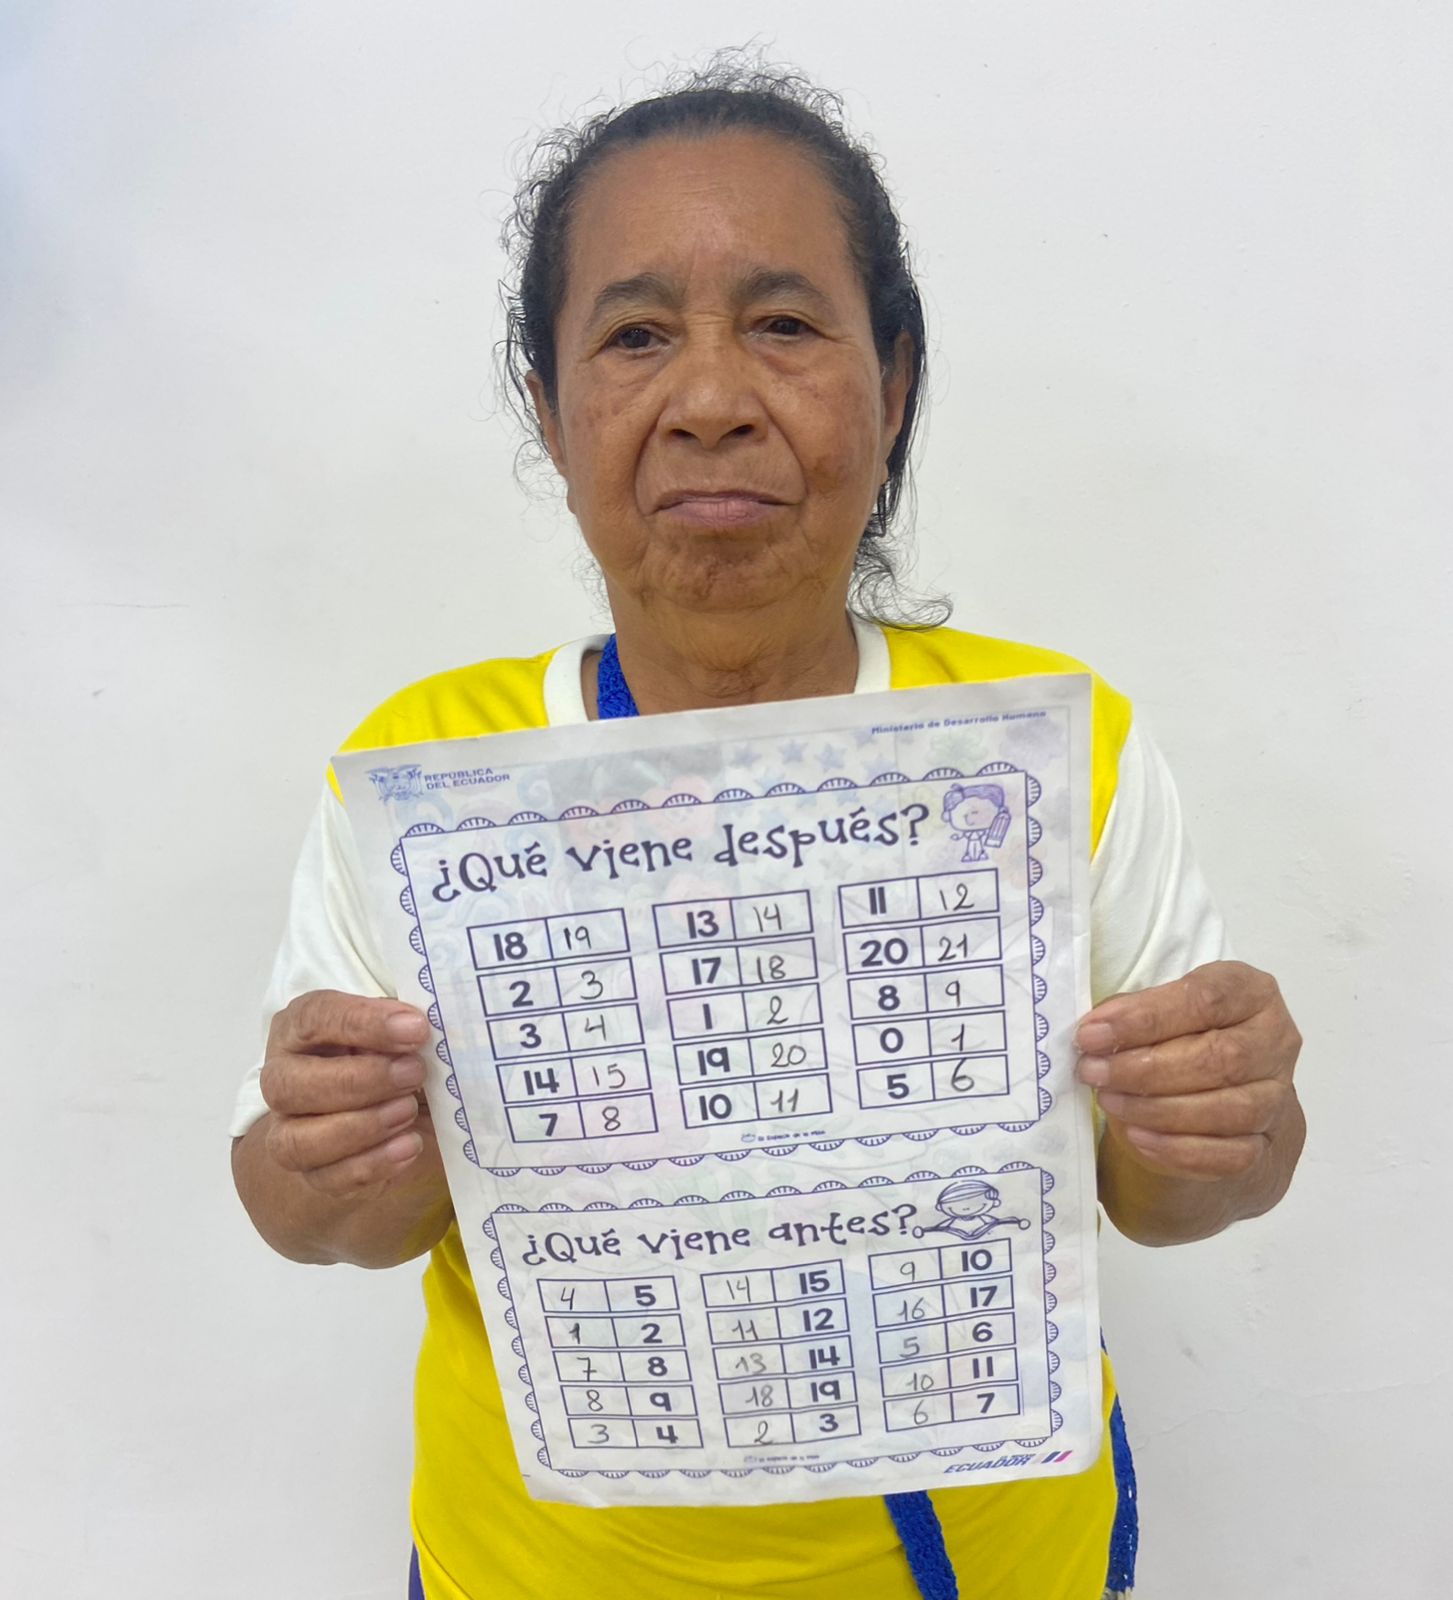 Ministerio de Desarrollo Humano
REPÚBLICA
DEL ECUADOR
¿Qué viene después?
18 19 13 14 11 12
2 3 17 18 20 21
3 4 1 2 8 9
14 15 19 20 0 1
7 8 10 11 5 6
¿Qué viene antes?
4 5 14 15 9 10
1 2 11 12 16 17
7 8 13 14 5 6
8 9 18 19 10 11
3 4 2 3 6 7
ECUADOR